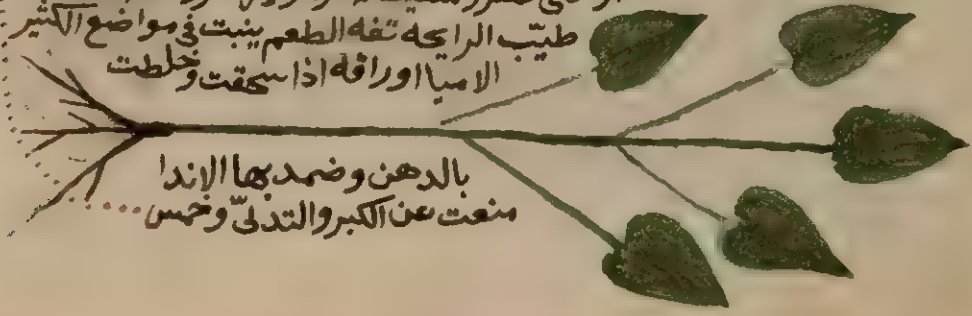 طيّب الرايحة تفه الطعم ينبت فى مواضع الكثير
الاميا اوراقه اذا سحقت وخلطت
بالدهن وضمد بها الاندا
منعت عن الكبر والتدلىّ وخمس